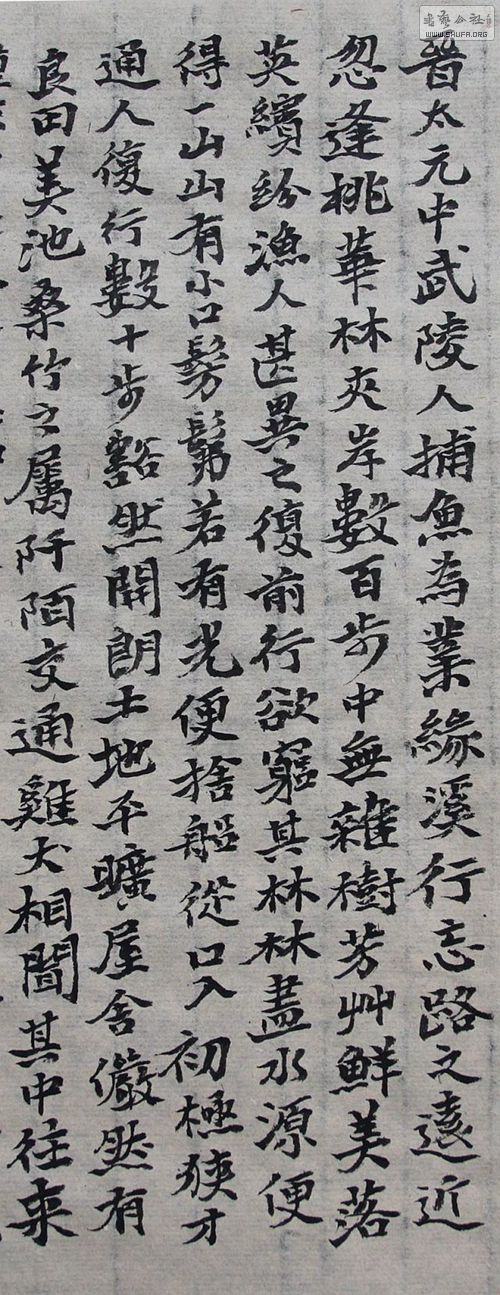 晉太元中武陵人捕魚為業緣溪行忘路之遠近
忽逢桃華林夾岸數百步中無雜樹芳艸鮮美落
英繽紛漁人甚異之復前行欲窮其林林盡水源便
得一山山有小口髣髴若有光便捨船從口入初極狹才
通人復行數十步豁然開朗土地平曠屋舍儼然有
良田美池桑竹之屬阡陌交通雞犬相聞其中往來
WWW.SHUFA.ORG